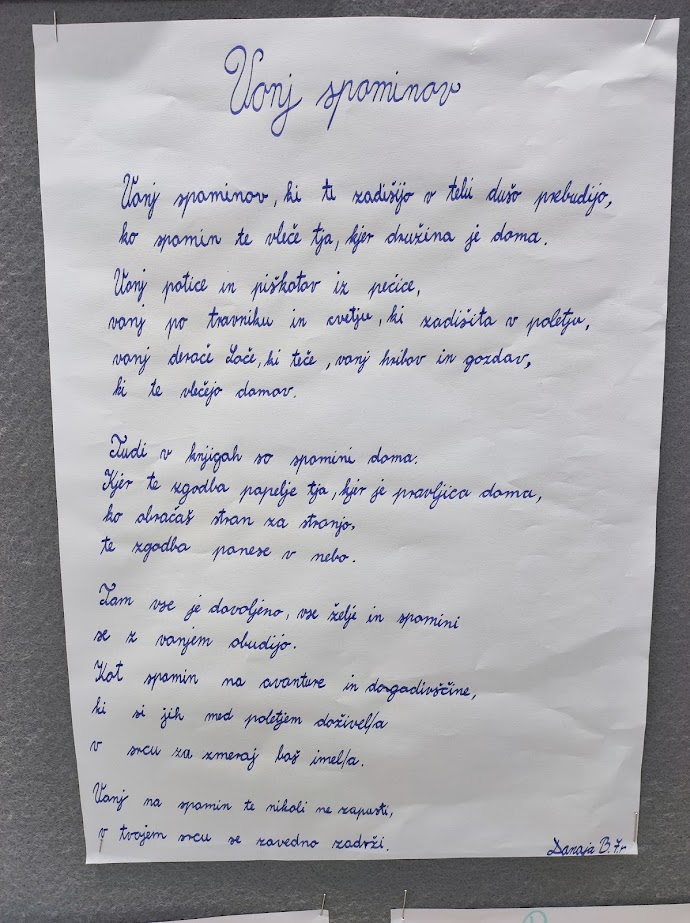 Vonj spominov
Vonj spominov, ki te zadišijo v telu dušo prebudijo,
ko spomin te vleče tja, kjer družina je doma.
Vonj potice in piškotov iz pečice,
vonj po travniku in cvetju, ki zadišita v poletju,
vonj deroče Loče, ki teče, vonj hribov in gozdov,
ki te vlečejo domov.
Tudi v knjigah so spomini doma.
Kjer te zgodba popelje tja, kjer je pravljica doma,
ko obračaš stran za stranjo,
te zgodba ponese v nebo.
Tam vse je dovoljeno, vse želje in spomini
se z vonjem obudijo.
Kot spomin na avanture in dogodivščine,
ki si jih med poletjem doživel/a
v srcu za zmeraj boš imel/a.
Vonj na spomin te nikoli ne zapusti,
v tvojem srcu se zavedno zadrži.
Danaja B. 7.r